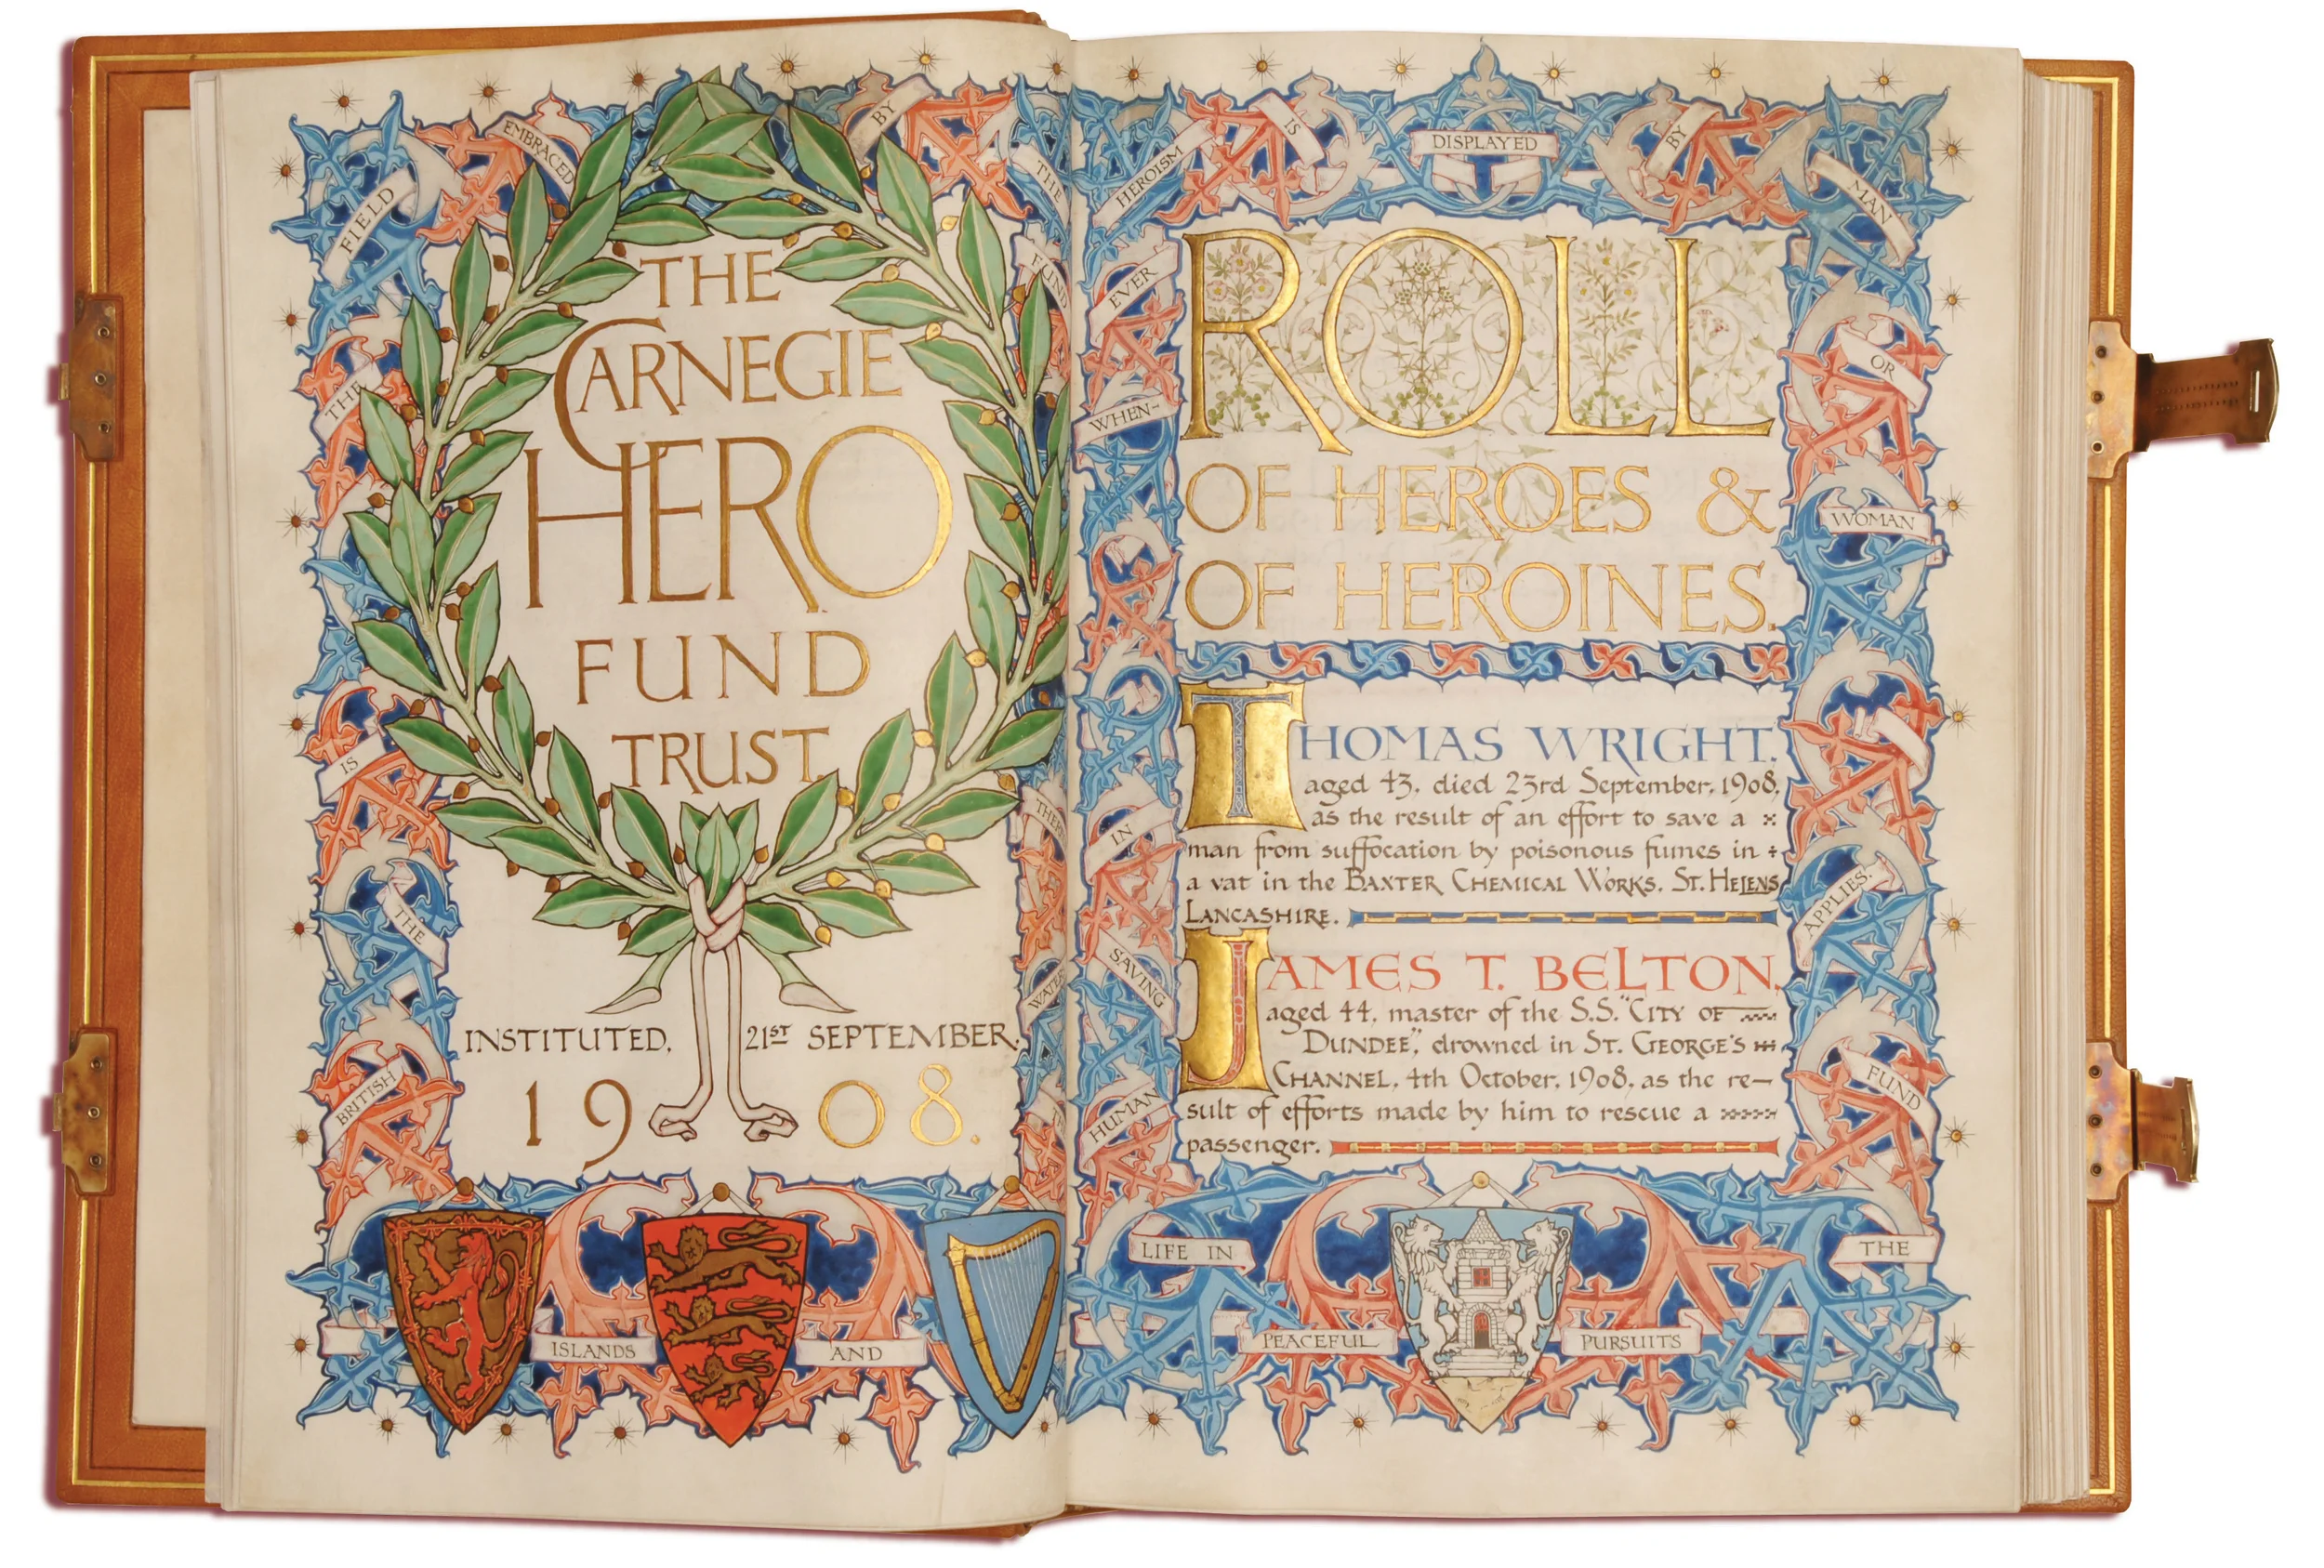 THE
CARNEGIE
HERO
FUND
TRUST.
INSTITUTED, 21ST SEPTEMBER.
1908.
THE
FIELD
EMBRACED
BY
THE
FUND
IS
THE
BRITISH
ISLANDS
AND
THEIR
WATERS
ROLL
OF HEROES &
OF HEROINES.
THOMAS WRIGHT,
aged 43, died 23rd September, 1908,
as the result of an effort to save a
man from suffocation by poisonous fumes in
a vat in the BAXTER CHEMICAL WORKS, ST. HELENS
LANCASHIRE.
JAMES T. BELTON,
aged 44, master of the S.S. "CITY OF
DUNDEE", drowned in ST. GEORGE'S
CHANNEL, 4th October, 1908, as the re-
sult of efforts made by him to rescue a
passenger.
WHEN-
EVER
HEROISM
IS
DISPLAYED
BY
MAN
OR
WOMAN
IN
SAVING
HUMAN
LIFE IN
PEACEFUL
PURSUITS
THE
FUND
APPLIES.